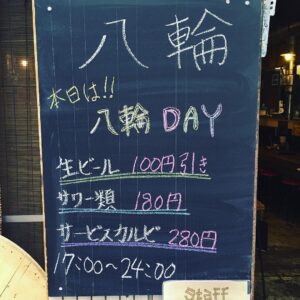 八輪
本日は!!
八輪 DAY
生ビール 100円引き
サワー類 180円
サービスカルビ 280円
17:00~24:00
Staff